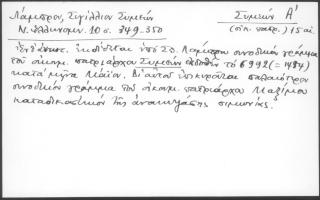 Λάμπρου, Σιγίλλιον Συμεών
Συμεών Α'
Ν. Ἑλληνομν. 10 σ. 349-350
(οἰκ. πατρ.) 15 αἰ.
ἐκδίδεται ὑπὸ Σπ. Λάμπρου συνοδικὸν γράμμα
τοῦ οἰκουμ. πατριάρχου Συμεὼν ἐκδοθὲν τὸ 6992 (= 1484)
κατὰ μῆνα Μάϊον. Δι' αὐτοῦ ἐπικυροῦται παλαιότερον
συνοδικὸν γράμμα τοῦ οἰκουμ. πατριάρχου Μαξίμου
καταδικαστικὸν τῆς σιμωνίας.